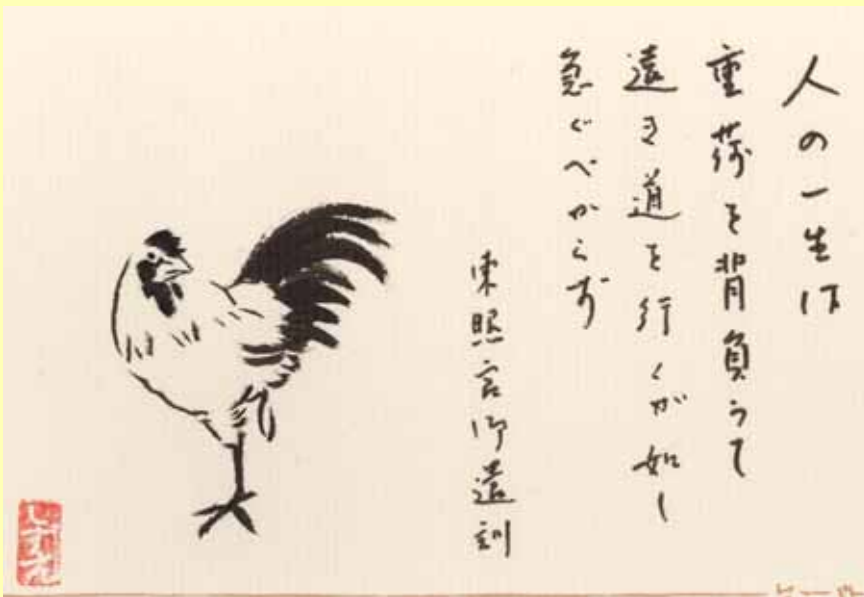 人の一生は
重荷を背負うて
遠き道を行くが如し
急ぐべからず
東照宮御遺訓